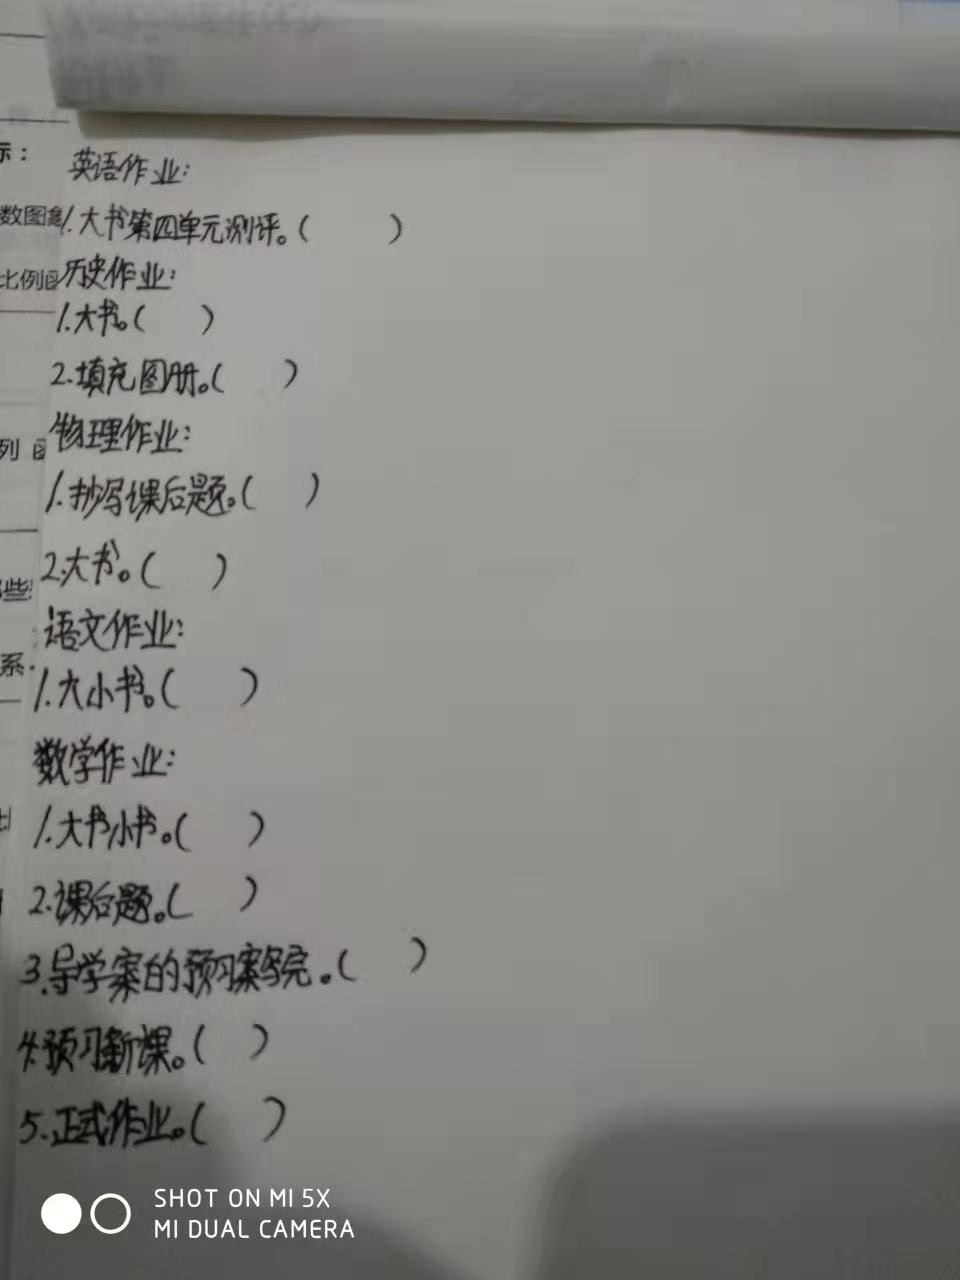 示：
数图
比例
列
些
系
英语作业：
1.大书第四单元测评。(    )
历史作业：
1.大书。(    )
2.填充图册。(    )
物理作业：
1.抄写课后题。(    )
2.大书。(    )
语文作业：
1.大小书。(    )
数学作业：
1.大书小书。(    )
2.课后题。(    )
3.导学案的预习案写完。(    )
4.预习新课。(    )
5.正式作业。(    )
SHOT ON MI 5X
MI DUAL CAMERA